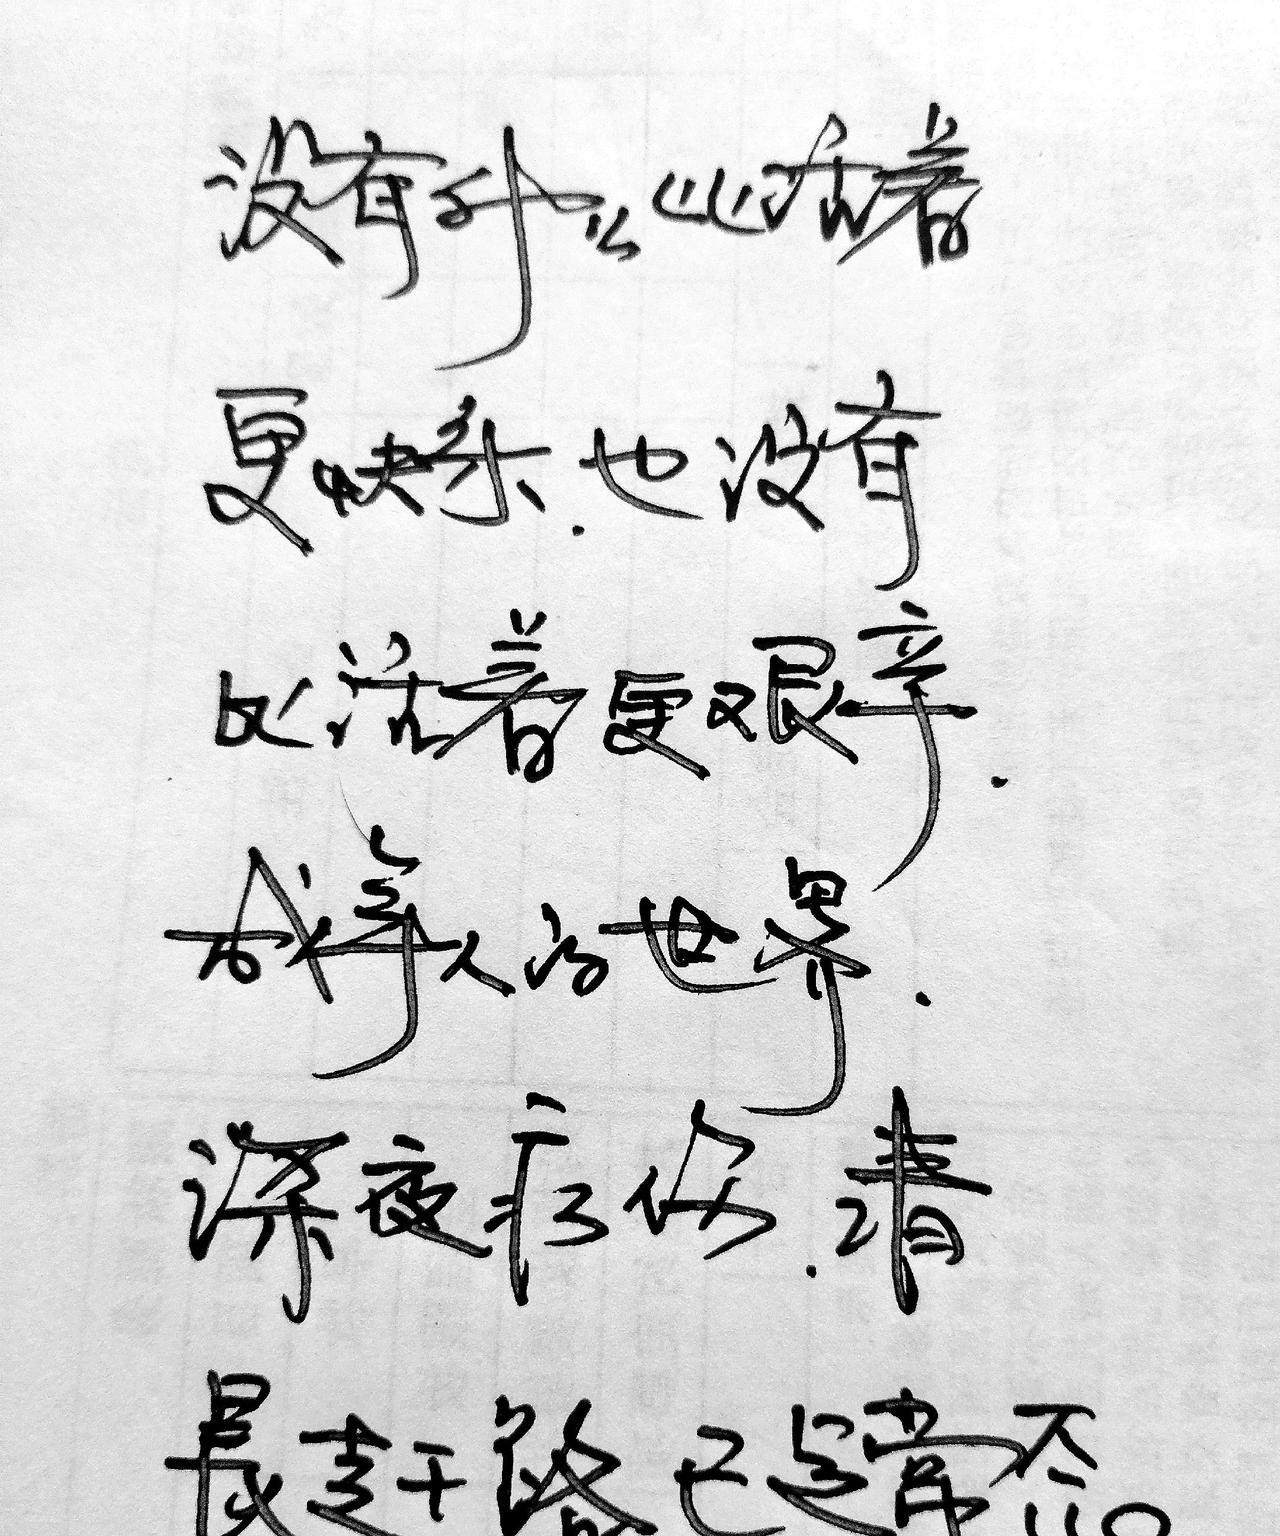 没有什么比活着
更快乐.也没有
比活着更艰辛.
成年人的世界.
深夜疗伤.清
晨赶路已是常态